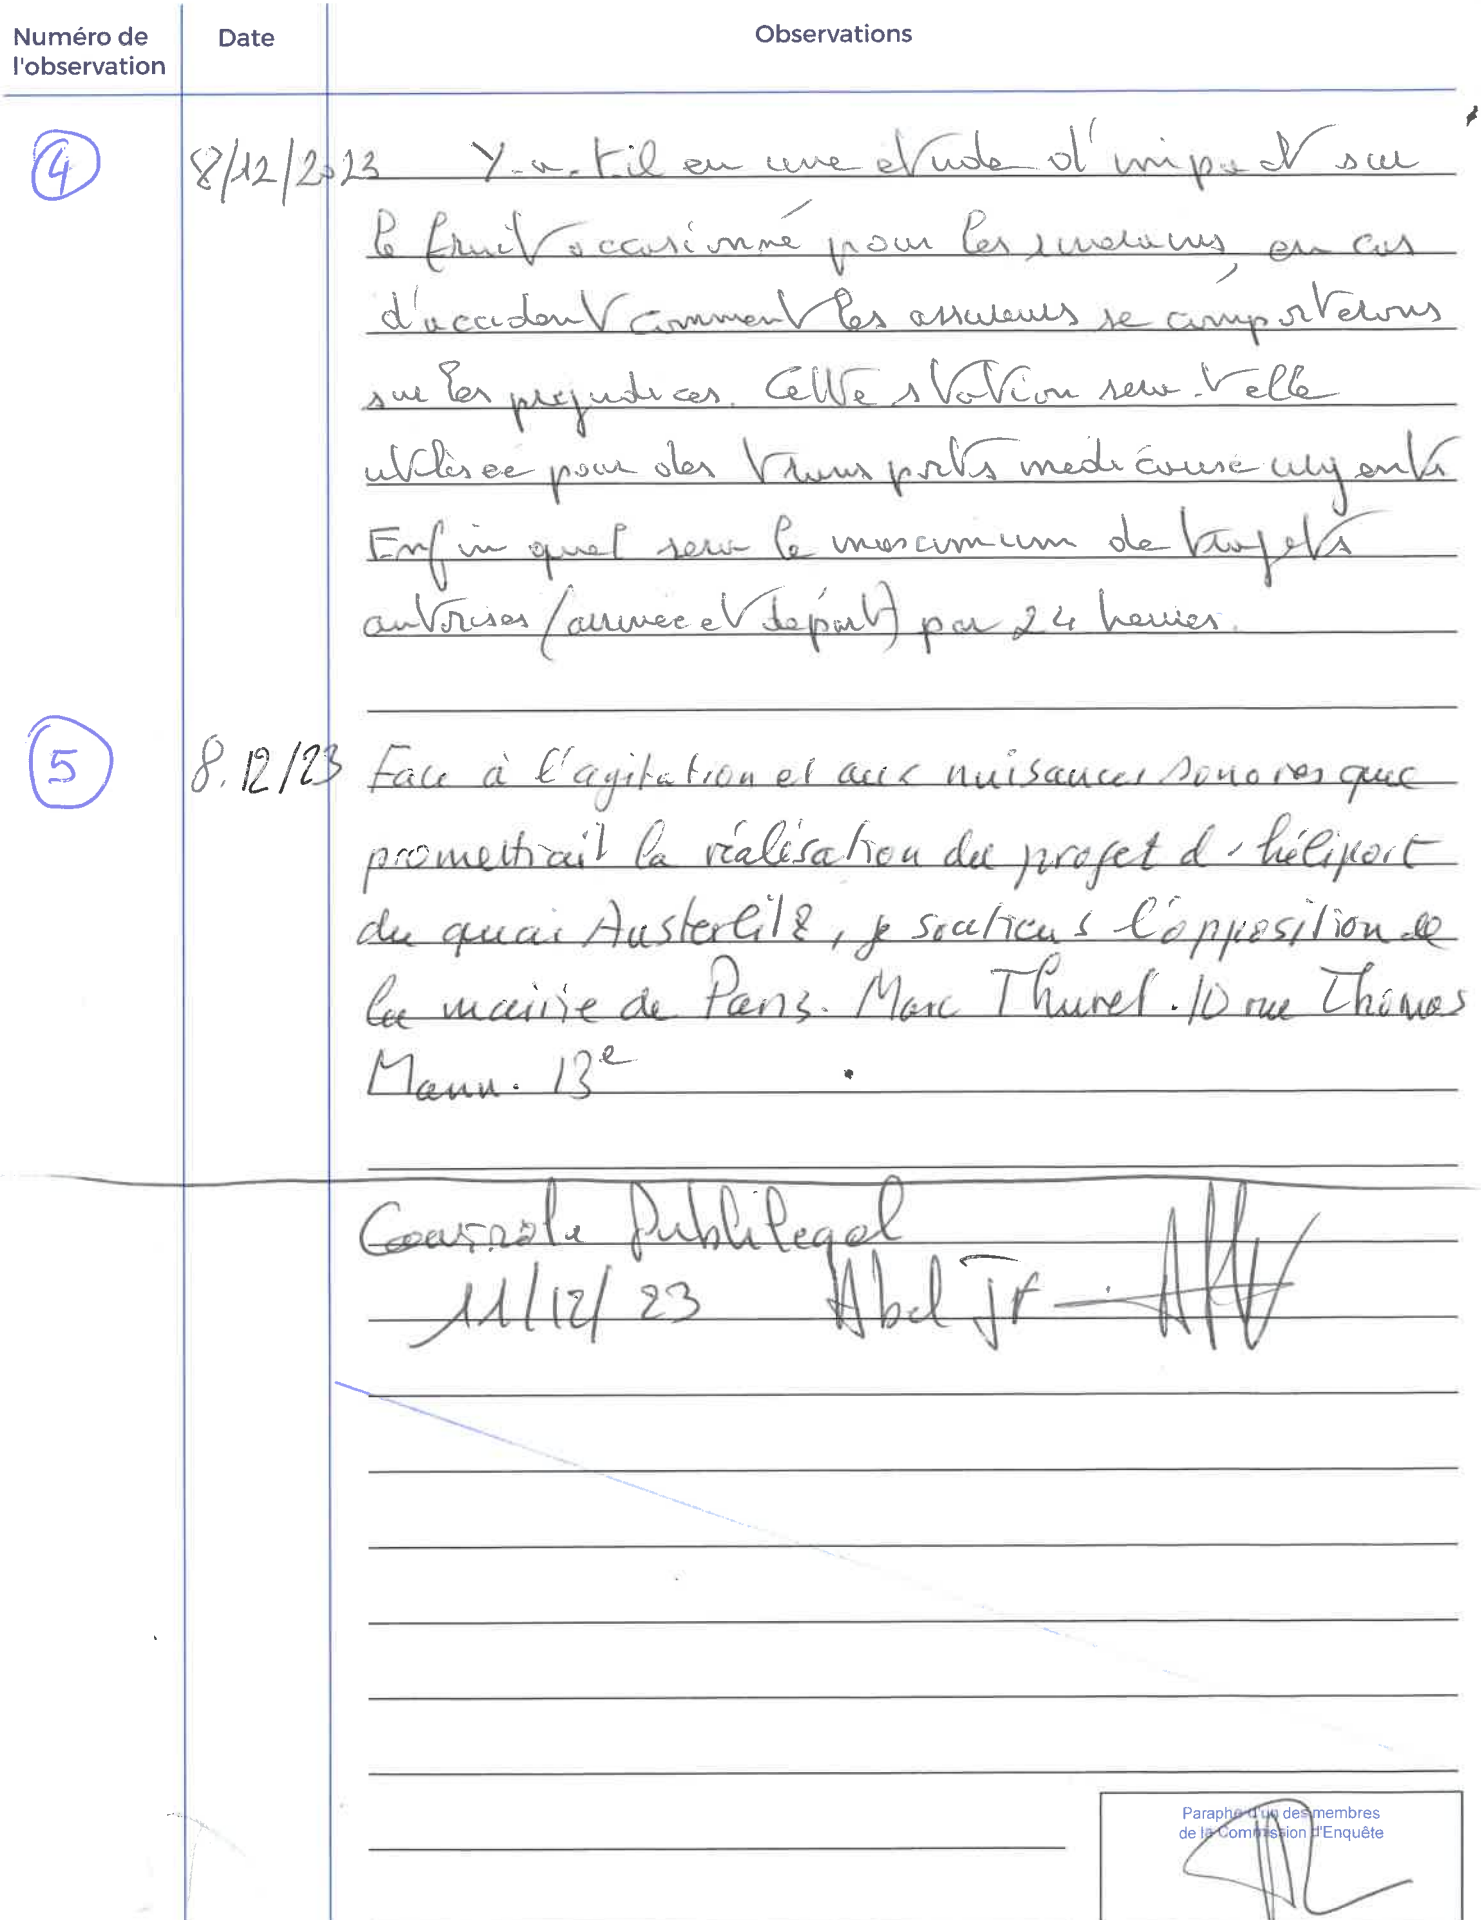 Numéro de
l'observation
Date
Observations
4
8/12/2023 Y-a-t-il eu une etude d'impact sur
le bruit occasionné pour les riverains, en cas
d'accident comment les assureurs se comporterons
sur les prejudices. Cette station sera-t-elle
utilisee pour des transports medicaux urgents
Enfin quel sera le maximum de trajets
autorises (arrivee et départ) par 24 heures.
5
8.12/23 Face à l'agitation et aux nuisances sonores que
promettrait la réalisation du projet d'héliport
du quai Austerlitz, je soutiens l'opposition de
la mairie de Paris. Marc Thurel. 10 rue Thomas
Mann. 13e
Controle Publilegal
11/12/23 Abel
Paraphe d'un des membres
de la Commission d'Enquête